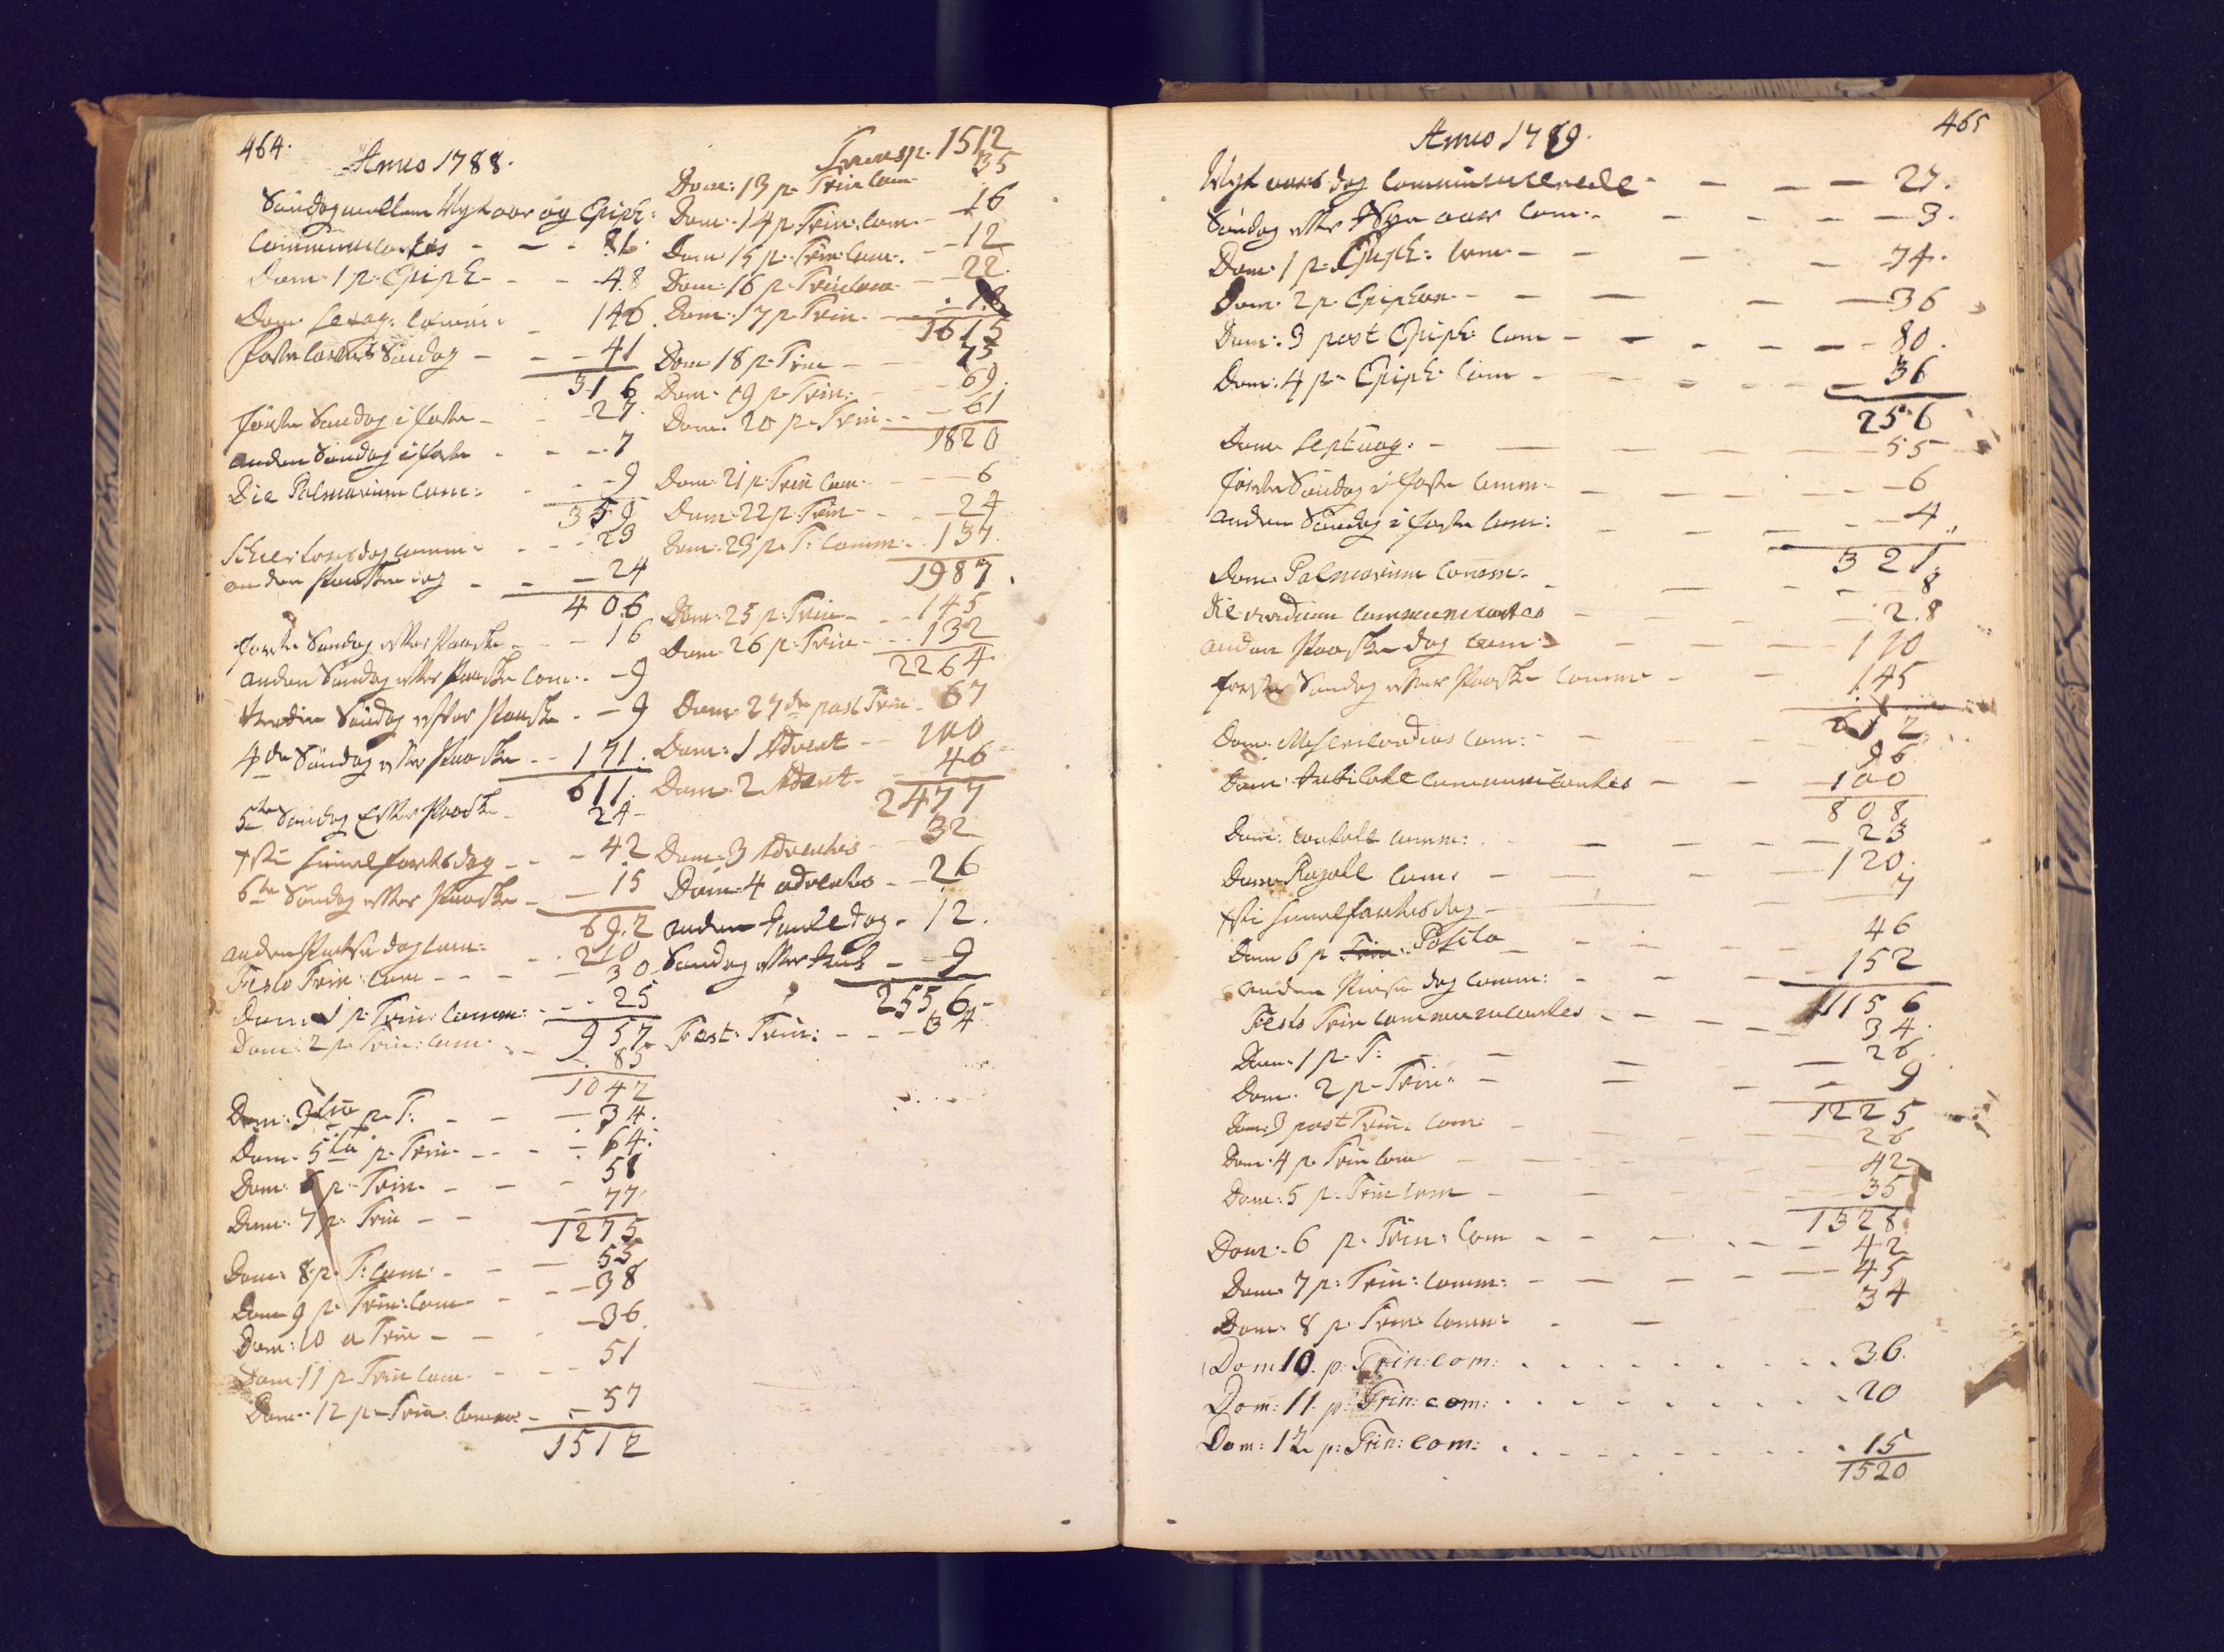 464.
Anno 1788.
Søndag mellem Nyt aar og Epiph:
Communicantes - - - 81.
Dom: 1 p: Epiph - - - 48
Dom. Sexag: Comm: - 146.
Faste lavens Søndag - - - 41
316
første Søndag i faste - - 27.
anden Søndag i faste - - - 7
Die Palmarum Com: - - 9
359
Schiertorsdag comm: - - - 23
anden Paaske dag - - - 24
406
første Søndag efter Paaske - - 16
anden Søndag efter Paaske Com: - 9
tredie Søndag efter Paaske - - 9
4de Søndag efter Paaske - - 171.
611.
5te Søndag Efter Paaske - 24
Xsti Himmelfarts dag - - - 42
6te Søndag efter Paaske - - 15
692
anden Pintse dag Com: - - 210
Festo Trin: Com - - - - 30
Dom 1 p: Trin: Comm: - - - 25
957
Dom: 2 p: Trin: Com: - - 85
1042
Dom: 3tia p. T: - - - 34.
Dom. 5ta p. Trin. - - - 64.
Dom: 6 p: Trin. - - - 58
Dom: 7 p: Trin - - - 77
1275
Dom: 8 p. T: Com: - - - 55
Dom 9 p. Trin: Com - - - 38
Dom: 10 a Trin - - - 36.
Dom 11 p. Trin Com - - - 51
Dom: 12 p Trin: Comm: - - 57
1512
Transp. 1512
Dom: 13 p. Trin Com - 35
Dom: 14 p. Trin. Com - 16
Dom 15 p. Trin: Com. - - 12
Dom: 16 p. Trin Com - - 22.
Dom: 17 p Trin. - 18
1615
Dom 18 p. Trin - - 75
Dom. 19 p. Trin: - - 69.
Dom. 20 p. Trin - - 61
1820
Dom: 21 p. Trin Com: - - 6
Dom: 22 p. Trin - - - 24
Dom: 23 p. T: Comm: - 137.
1987.
Dom: 25 p: Trin - - - 145
Dom 26 p: Trin - - - 132
2264
Dom: 27de post Trin - 67
Dom: 1 Advent - - 100
Dom. 2 Advent - - 46
2477
Dom. 3 Adventus - - 32
Dom: 4 adventus - - 26
anden Juule dag - 12.
Søndag efter Juul - - 9
2556 -
Fest: Trin: - - - 34
465
Anno 1789.
Nyt aars dag communicerede - - - - 27.
Søndag efter Nye aar Com: - - - - - 3.
Dom: 1 p: Epiph: Com - - - - 74.
Dom. 2 p. Epiphan - - - - - 36
Dom: 3 post Epiph: Com - - - - - 80.
Dom: 4 p. Epiph: Com - - - - - 36
256
Dom Septuag: - - - - - 55
første Søndag i Faste Comm: - - - - - 6
anden Søndag i faste Com: - - - - 4
321.
Dom: Palmarum Comm: - - - - 8
Die viridium communicantes - - - 28
anden Paaske dag Com: - - - 110
første Søndag efter Paaske Comm: - - 145
612
Dom: Misericordias Com: - - - 96
Dom: Jubilate communicantes - - - 100
808
Dom: Cantate comm: - - - - 23
Dom Rogate Com: - - - - 120.
Xsti himmelfarts dag - - - 7
Dom 6 p Pascha - - - 46
anden Pintse dag Comm: - - - - 152
1156
Festo Trin communicantes - - - - 34.
Dom: 1 p. T: - - - - 26.
Dom. 2 p. Trin: - - - - 9
1225
Dom: 3 post Trin: Com: - - - - 26
Dom: 4 p. Trin Com - - - - 42
Dom: 5 p. Trin Com - - - - 35
1328.
Dom: 6 p. Trin: Com - - - - 42
Dom: 7 p: Trin: Comm: - - - - - 45
Dom: 8 p. Trin: Comm: - - 34
Dom 10. p: Trin: com: . . . . . . . . 36.
Dom: 11. p: Trin: com: . . . . . . . . 20
Dom: 12 p: Trin: com: . . . . . . . . 15
1520